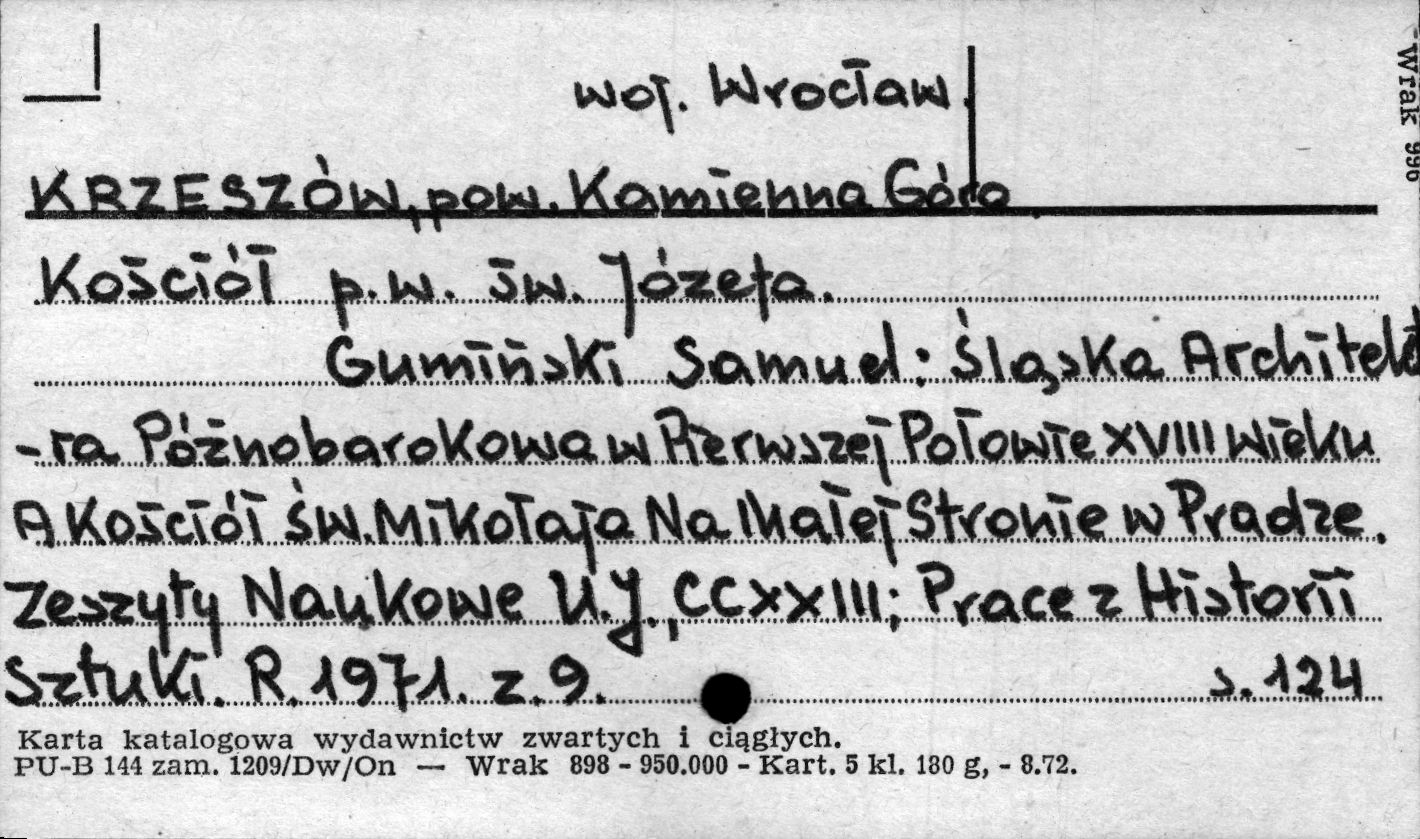 woj. Wrocław.
KRZESZÓW, pow. Kamienna Góra
Kościół p.w. św. Józefa.
Gumiński Samuel: Śląska Architektu
-ra Późnobarokowa w Pierwszej Połowie XVIII Wieku
A Kościół św. Mikołaja Na Małej Stronie w Pradze.
Zeszyty Naukowe U.J., CCXXIII; Prace z Historii
Sztuki. R. 1971. z. 9. s. 124
Karta katalogowa wydawnictw zwartych i ciągłych.
PU-B 144 zam. 1209/Dw/On — Wrak 898 - 950.000 - Kart. 5 kl. 180 g, - 8.72.
Wrak 996